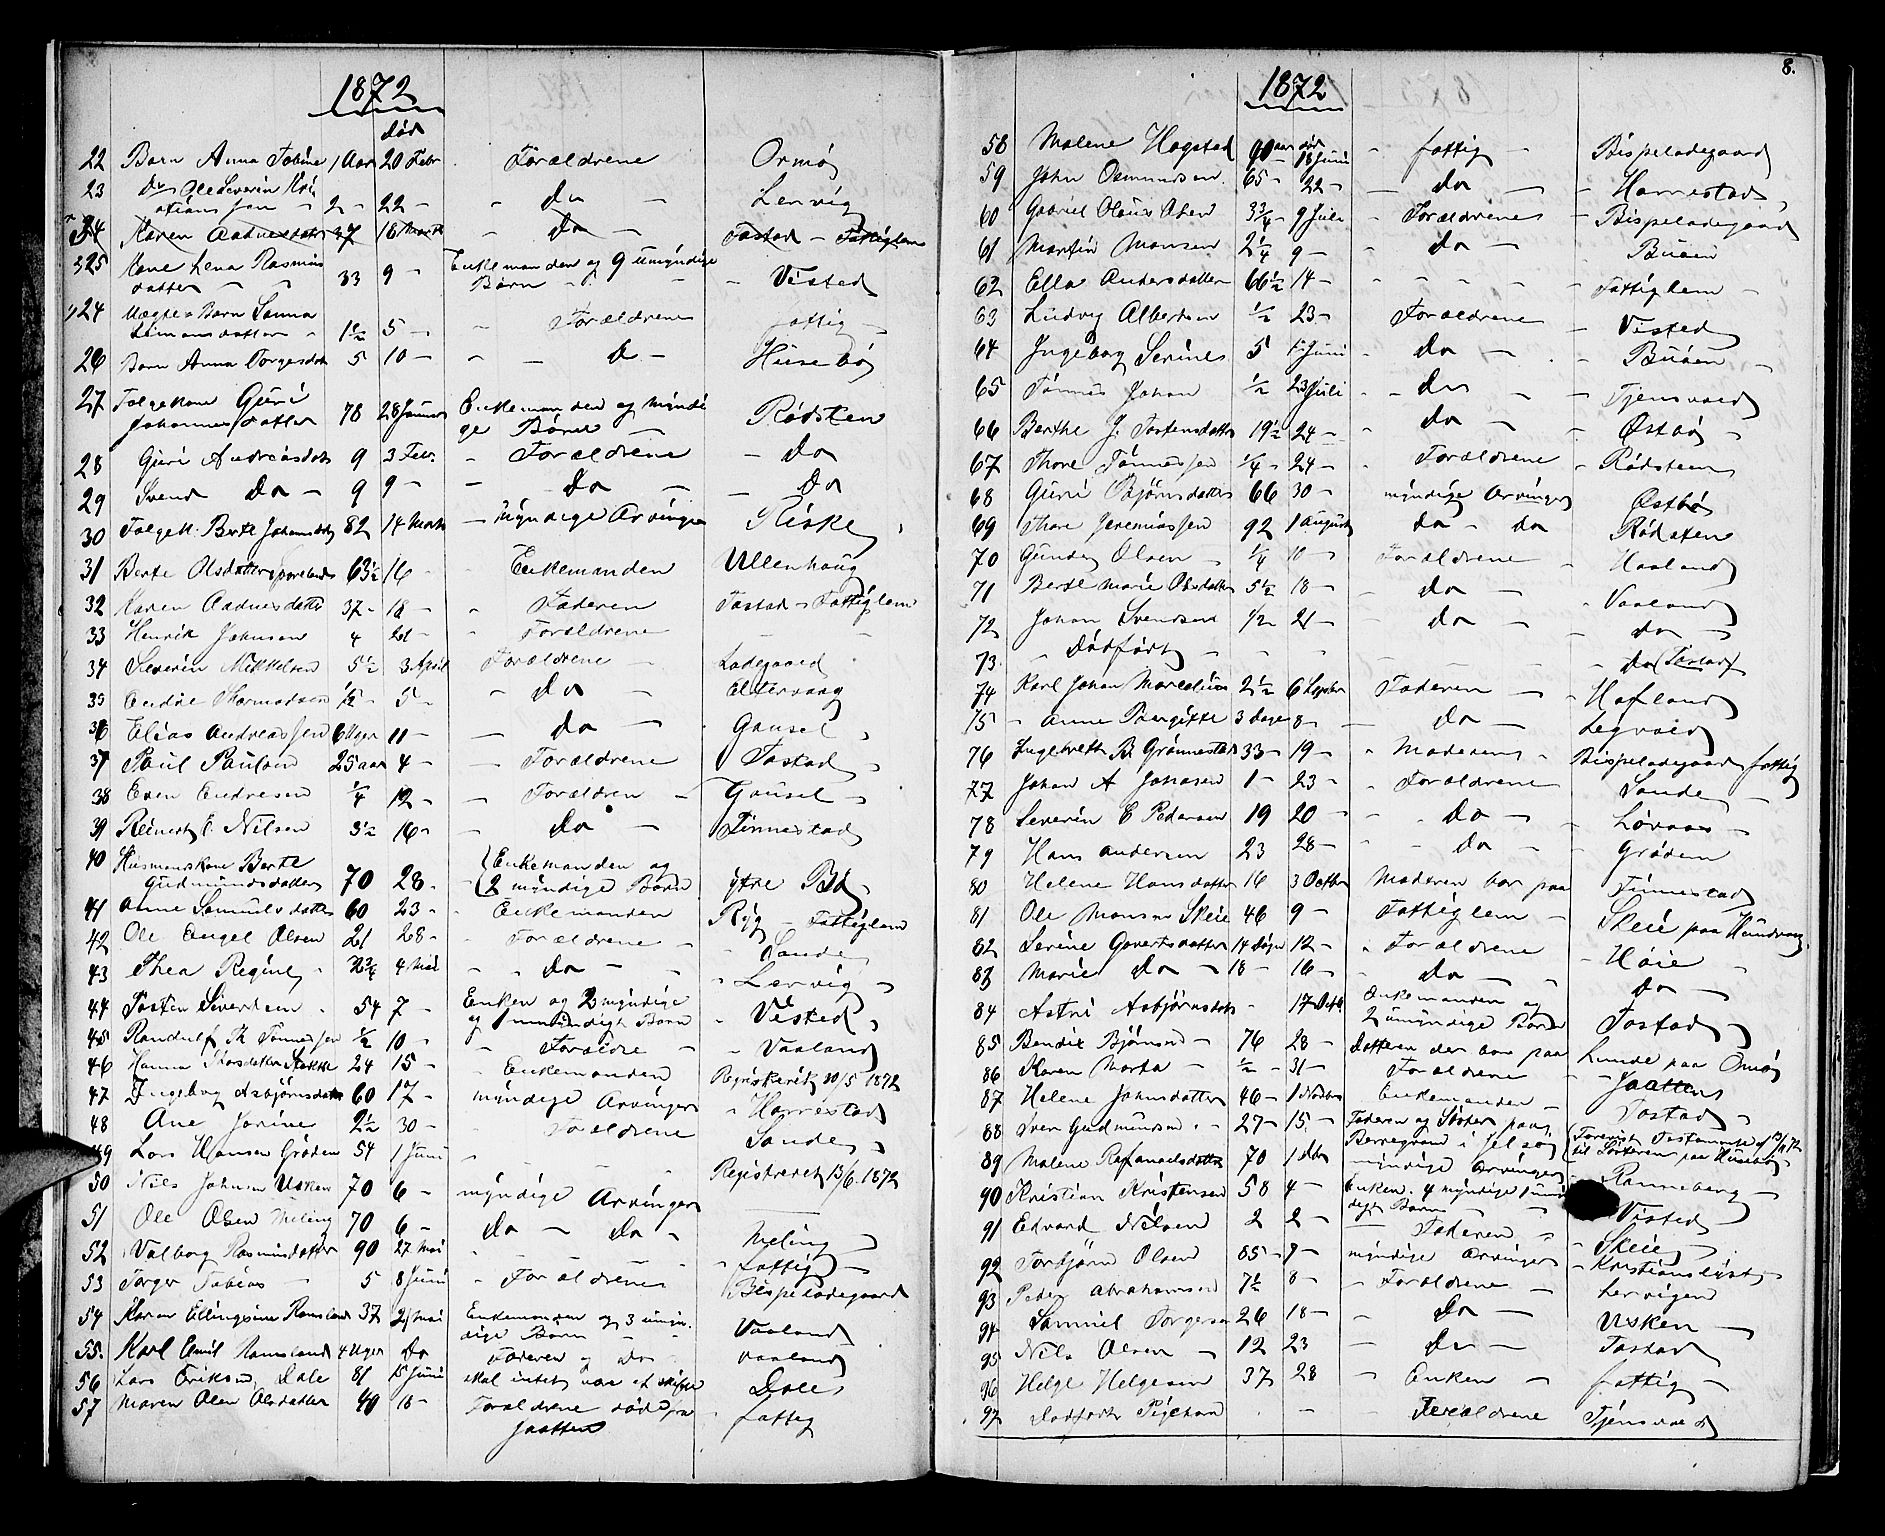 1872
død
22 Barn Anna Tobine 1 Aar 20 Febr Forældrene Ormø
23 Do Ole Severin Kri
stiansen 2 - 22 - " do - Lervig
34 Karen Aadnesdatter 37 18 Marts " do - Tastad - Fattiglem
25 Kone Lena Rasmus Enkemanden og 9 umyndige
datter - - 33 9 - Børn - - Visted
24 Barn Sanna
Simonsdatter - 1½ 5 - " Forældrene fattig -
26 Barn Anna Torgesdatr 5 10 - " - D. - Husebø
27 Folgekone Guri Enkemanden og myndi
Johannesdatter 78 28 Januar ge Børn - Rødsten
28 Guri Andreasdatr 9 3 Febr. - Forældrene - do
29 Svend do - 9 9 - - do - - do
30 Folgek. Berte Johannesdtr 82 14 Marts - Myndige Arvinger Riske,
31 Berte Olsdatter 63½ 16 - Enkemanden Ullenhoug
32 Karen Aadnesdatter 37 - 18 - " Faderen Tastad - Fattiglem
33 Henrik Johnsen 4 21 - " Forældrene - -
34 Severin Mikkelsen 5½ 3 April Forældrene - Ladegaard
35 Endre Thormodsen ½ - 5 - " do - Eltervaag
36 Elias Andreassen 6 Uger 11 - - do - Gausel,
37 Paul Paulsen 25 aar 4 - - Forældrene Tastad -
38 Even Endresen ¼ 12 - - Forældren - Gausel -
39 Reinert E. Nilsen 3½ 16 - - do - Tinnestad
40 Husmandskone Berte Enkemanden og
Gudmundsdatter 70 28 - 2 myndige Børn ytre Bø -
41 Anne Samuelsdatter 60 23 - - Enkemanden Ryg - Fattiglem
42 Ole Engel Olsen 21 28 - " Forældrene - Sande
43 Thea Regine - 2¾ 4 Mai " - do - - " Lervig -
44 Tosten Sivertsen - 54 7 - Enken og 2 myndige
og 1 umyndigt Barn " Visted,
45 Randulf Th Tønnessen ½ 10 - " Forældre - - Vaaland
46 Hanna Thorsdatter Stokke 24 15 - " Enkemanden Registrerit 30/5 1872
47 Ingeborg Asbjørnsdatr 60 17 - myndige Arvinger - Harrestad
48 Ane Jorine 2½ 30 - - Forældrene Sande -
49 Lars Hansen Grøden 54 1 Juni - - -
50 Nils Johnsen Usken 70 6 - myndige Arvinger Registreret 13/6. 1872
51 Ole Olsen Meling 70 6 - do - do - Meling -
52 Valborg Rasmusdatter 90 27 Mai " - - fattig -
53 Torger Tobias - 5 8 Juni " Forældrene - Bispeladegaard
54 Karen Ellingsine Ramsland 37 21 Mai Enkemanden og 3 umyn-
dige Børn - - Vaaland
55. Karl Emil Ramsland 4 Uger do Faderen og do - Vaaland
56 Lars Eriksen Dale 81 15 Juni skal intet være at skifte Dale,
57 Maren Olen Olsdatter 40 18 - Forældrene døde fra - fattig
Jaatten
8.
1872
58 Malene Hogstad 90 aar død 18 Juni " fattig - Bispeladegaard
59 John Osmundsen 65 - 22 - - do - " Harrestad,
60 Gabriel Olaus Olsen 3¾ - 9 Juli - Forældrene - Bispeladegaard
61 Martin Monsen 2¼ 9 - " do - Buøen
62 Ella Andersdatter 66½ 14 - - - - - Fattiglem -
63 Ludvig Albertsen ½ 23 - Forældrene - Visted
64 Ingeborg Serine 5 1 Juni " do - - Buøen -
65 Tønnes Johan ½ 23 Juli - - do - - Tjensvold
66 Berthe J. Tostensdatter 19½ 24 - " do - - Østbø -
67 Thore Tønnessen ¼ - 24 - " Forældrene - Rødsteen
68 Guri Bjørnsdatter 66 30 - myndige Arvinger Østbø
69 Thore Jeremiassen 92 1 August do - do Rødsten
70 Gunder Olsen - ¼ 10 - Forældrene - Haaland
71 Berte Marie Olsdatter 5½ 18 - do - Vaaland
72 Johan Svendsen ½ 21 - " do - - do -
73. - Dødfødt - - - - - - - do (Tastad)
74 Karl Johan Marcelius 2½ 6 Septbr Faderen - - Hafland
75 - Anne Bergitte 3 dage 8 - - do - - Legvold
76 Ingebreth B. Grønnestad 33 - 19 - " Moderen - Bispeladegaard fattig
77 Johan A Johnsen 1 - 23 - " Forældrene Sande -
78 Severin E Pedersen 19 20 - " do - - Løvaas -
79 Hans Andersen 23 28 - - do - - Grødem
80 Helene Hansdatter 16 3 Octbr Moderen bor paa Tinnestad
81 Ole Monsen Skeie 46 9 - Fattiglem - Skeie paa Hundvaag
82 Serine Govertsdatter 14 dage 12 - " Forældrene - Høie -
83 Marie do - 18 - 16 - " do - - do -
84 Astri Asbjørnsdatr - 17 Octbr Enkemanden og
2 umyndige Børn Tastad -
85 Bendix Bjørnsen - 76 28 - Datteren der bor paa Lunde paa Omø
86 Karen Marta - ½ - 31 - Forældrene - - Jaatten
87 Helene Johnsdatter 46 - 1 Novbr Enkemanden - Tastad -
88 Sven Gudmundsen. - 27 - 15. Faderen og Søster paa
89 Malene Rafaelsdatter 70 1 Dbr myndige Arvinger
90 Kristian Kristensen 58 4 - Enken. 4 myndige 1 umyn
digt Barn - Ranneberg -
91 Edvard Nilsen 2 2 - - Faderen - Visted -
92 Torbjørn Olsen 85 - 9 - myndige Arvinger - Skeie
93 Peder Abrahamsen 7½ 8 - " Forældrene - - Kristianslyst
94 Samuel Torgersen 26 18 - " do - Lervigen
95 Nils Olsen - 12 23 - do - Usken -
96 Helge Helgesen 37 28 " Enken - Tastad
97 Dødfødt Pigebarn - - Forældrene fattig -
Tjensvold